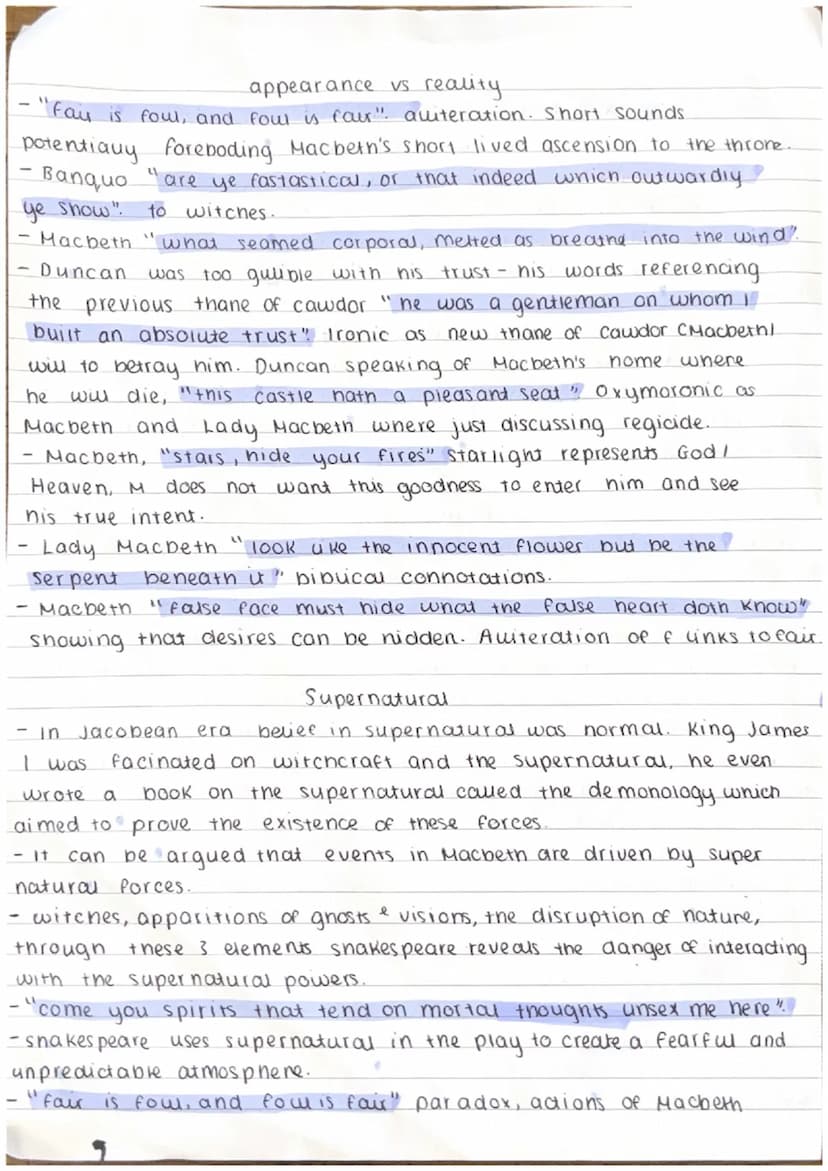 appearance vs reality
- "fair is foul, and foul is fair". alliteration. Short sounds
potentially foreboding Macbeth's short lived ascension to the throne.
- Banquo "are ye fastastical, or that indeed which outwardly
ye show". to witches.
- Macbeth "what seamed corporal, melted as breathd into the wind".
- Duncan was too gullible with his trust - his words referencing
the previous thane of cawdor "he was a gentleman on whom I
built an absolute trust". Ironic as new thane of Cawdor (Macbeth)
will to betray him. Duncan speaking of Macbeth's home where
he will die, "this castle hath a pleasand seat". Oxymoronic as
Macbeth and Lady Macbeth where just discussing regicide.
- Macbeth, "stars, hide your fires" starlight represents God/
Heaven, M does not want this goodness to enter him and see
his true intent.
- Lady Macbeth "look like the innocent flower but be the
serpent beneath it" biblical connotations.
- Macbeth "false face must hide what the false heart doth know"
showing that desires can be hidden. Alliteration of f links to fair
Supernatural
- In Jacobean era belief in supernatural was normal. King James
I was facinated on witchcraft and the supernatural, he even
wrote a book on the supernatural called the demonology which
aimed to prove the existence of these forces.
- It can be argued that events in Macbeth are driven by super
natural forces.
- witches, apparitions of ghosts & visions, the disruption of nature,
through these 3 elements shakespeare reveals the danger of interacting
with the supernatural powers.
- "come you spirits that tend on mortal thoughts unsex me here".
- shakespeare uses supernatural in the play to create a fearful and
unpredictable atmosphere.
- "fair is foul, and foul is fair" paradox, actions of Macbeth